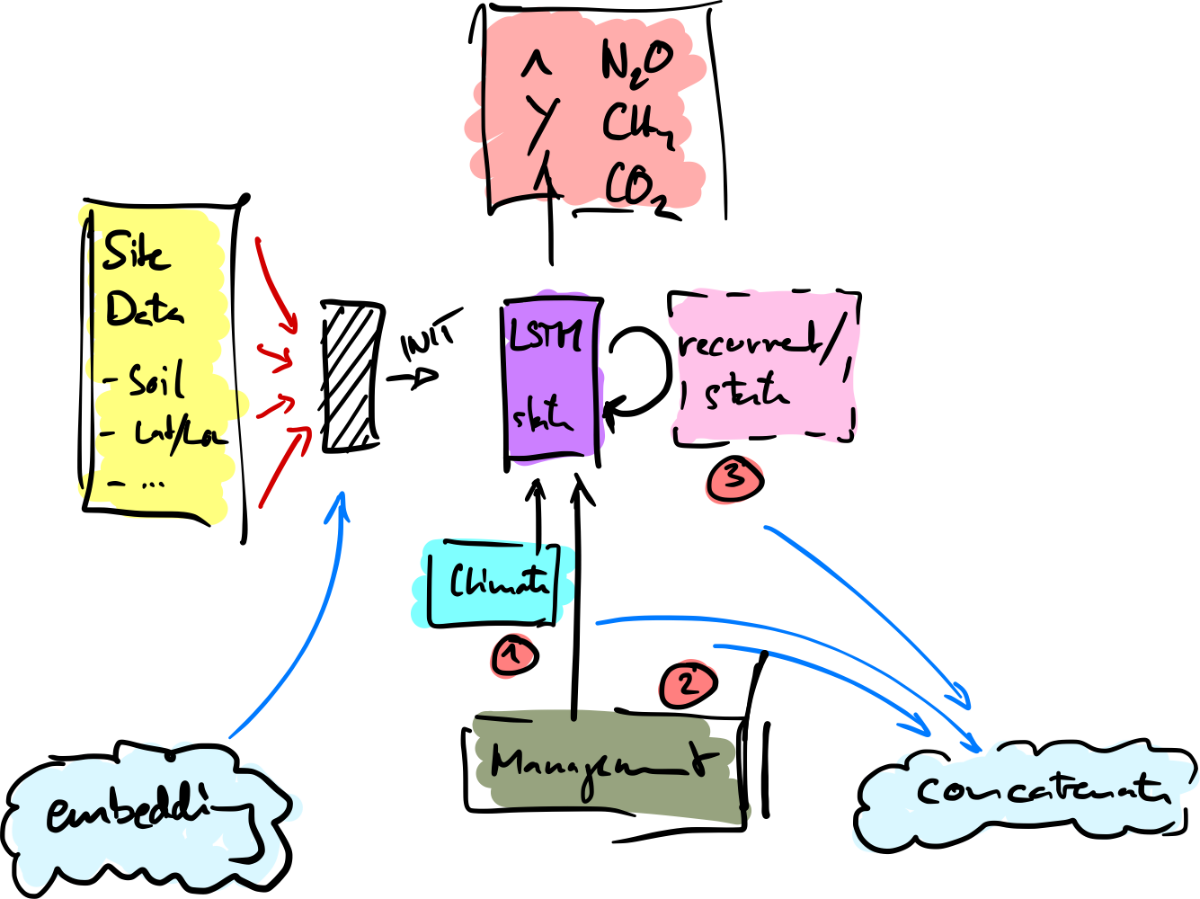 ^ N₂O
y CH₄
CO₂
Site
Data
- Soil
- Lat/Lon
- ...
INIT
LSTM
state
recurret/
state
3
Climate
1
2
Management
embeddi
concatenate